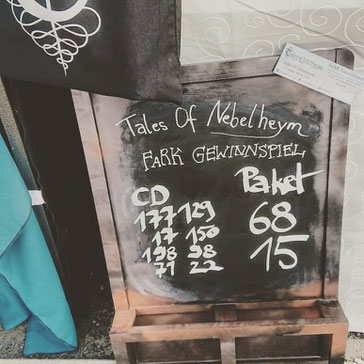 Tales Of Nebelheym
FARK GEWINNSPIEL
CD
Paket
177 129
17 150
198 98
71 22
68
15